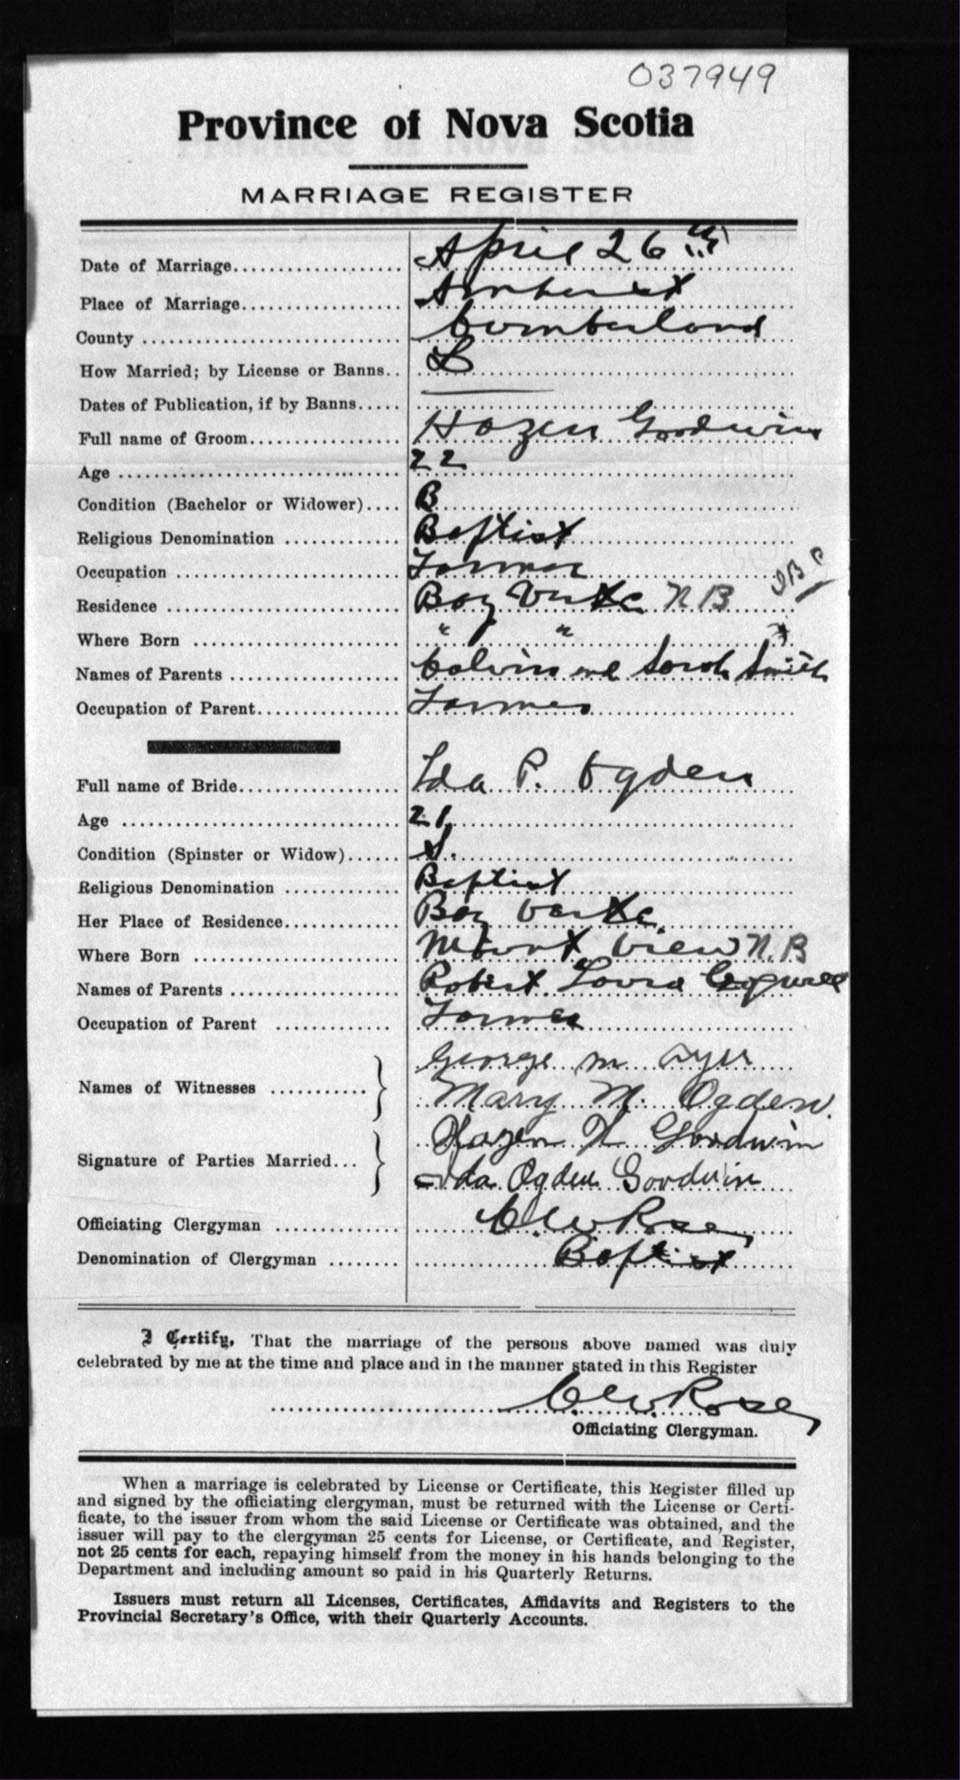 037949
Province of Nova Scotia
MARRIAGE REGISTER
Date of Marriage.................. April 26th
Place of Marriage................. Amherst
County ........................... Cumberland
How Married; by License or Banns.. L
Dates of Publication, if by Banns.....
Full name of Groom................ Hazen Goodwin
Age .............................. 22
Condition (Bachelor or Widower).... B
Religious Denomination ............ Baptist
Occupation ....................... Farmer
Residence ........................ Bay Verte N B
Where Born ....................... " "
Names of Parents ................. Calvin and Sarah Smith
Occupation of Parent.............. Farmer
Full name of Bride................ Ida P. Ogden
Age .............................. 21
Condition (Spinster or Widow)...... S.
Religious Denomination ............ Baptist
Her Place of Residence............ Bay Verte
Where Born ....................... Mount View N.B
Names of Parents ................. Robert Loura
Occupation of Parent ............ Farmer
Names of Witnesses ........... George M Ayer
Mary M. Ogden.
Signature of Parties Married... Hazen H Goodwin
Ida Ogden Goodwin
Officiating Clergyman ............ C.W. Rose
Denomination of Clergyman ........ Baptist
I Certify, That the marriage of the persons above named was duly
celebrated by me at the time and place and in the manner stated in this Register
C.W. Rose
Officiating Clergyman.
When a marriage is celebrated by License or Certificate, this Register filled up
and signed by the officiating clergyman, must be returned with the License or Certi-
ficate, to the issuer from whom the said License or Certificate was obtained, and the
issuer will pay to the clergyman 25 cents for License, or Certificate, and Register,
not 25 cents for each, repaying himself from the money in his hands belonging to the
Department and including amount so paid in his Quarterly Returns.
Issuers must return all Licenses, Certificates, Affidavits and Registers to the
Provincial Secretary's Office, with their Quarterly Accounts.